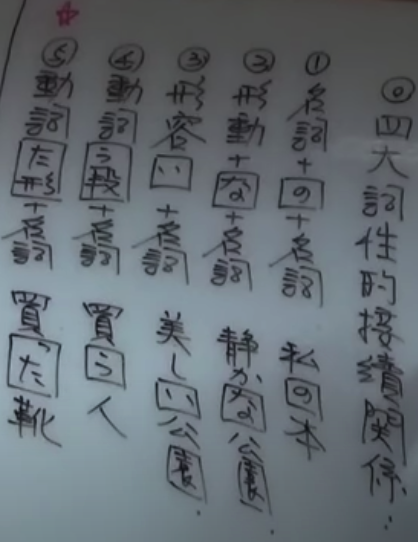 ◎四大詞性的接續關係:
①名詞+の+名詞 私の本
②形動+な+名詞 静かな公園.
③形容い+名詞 美しい公園.
④動詞う段+名詞 買う人
⑤動詞た形+名詞 買った靴